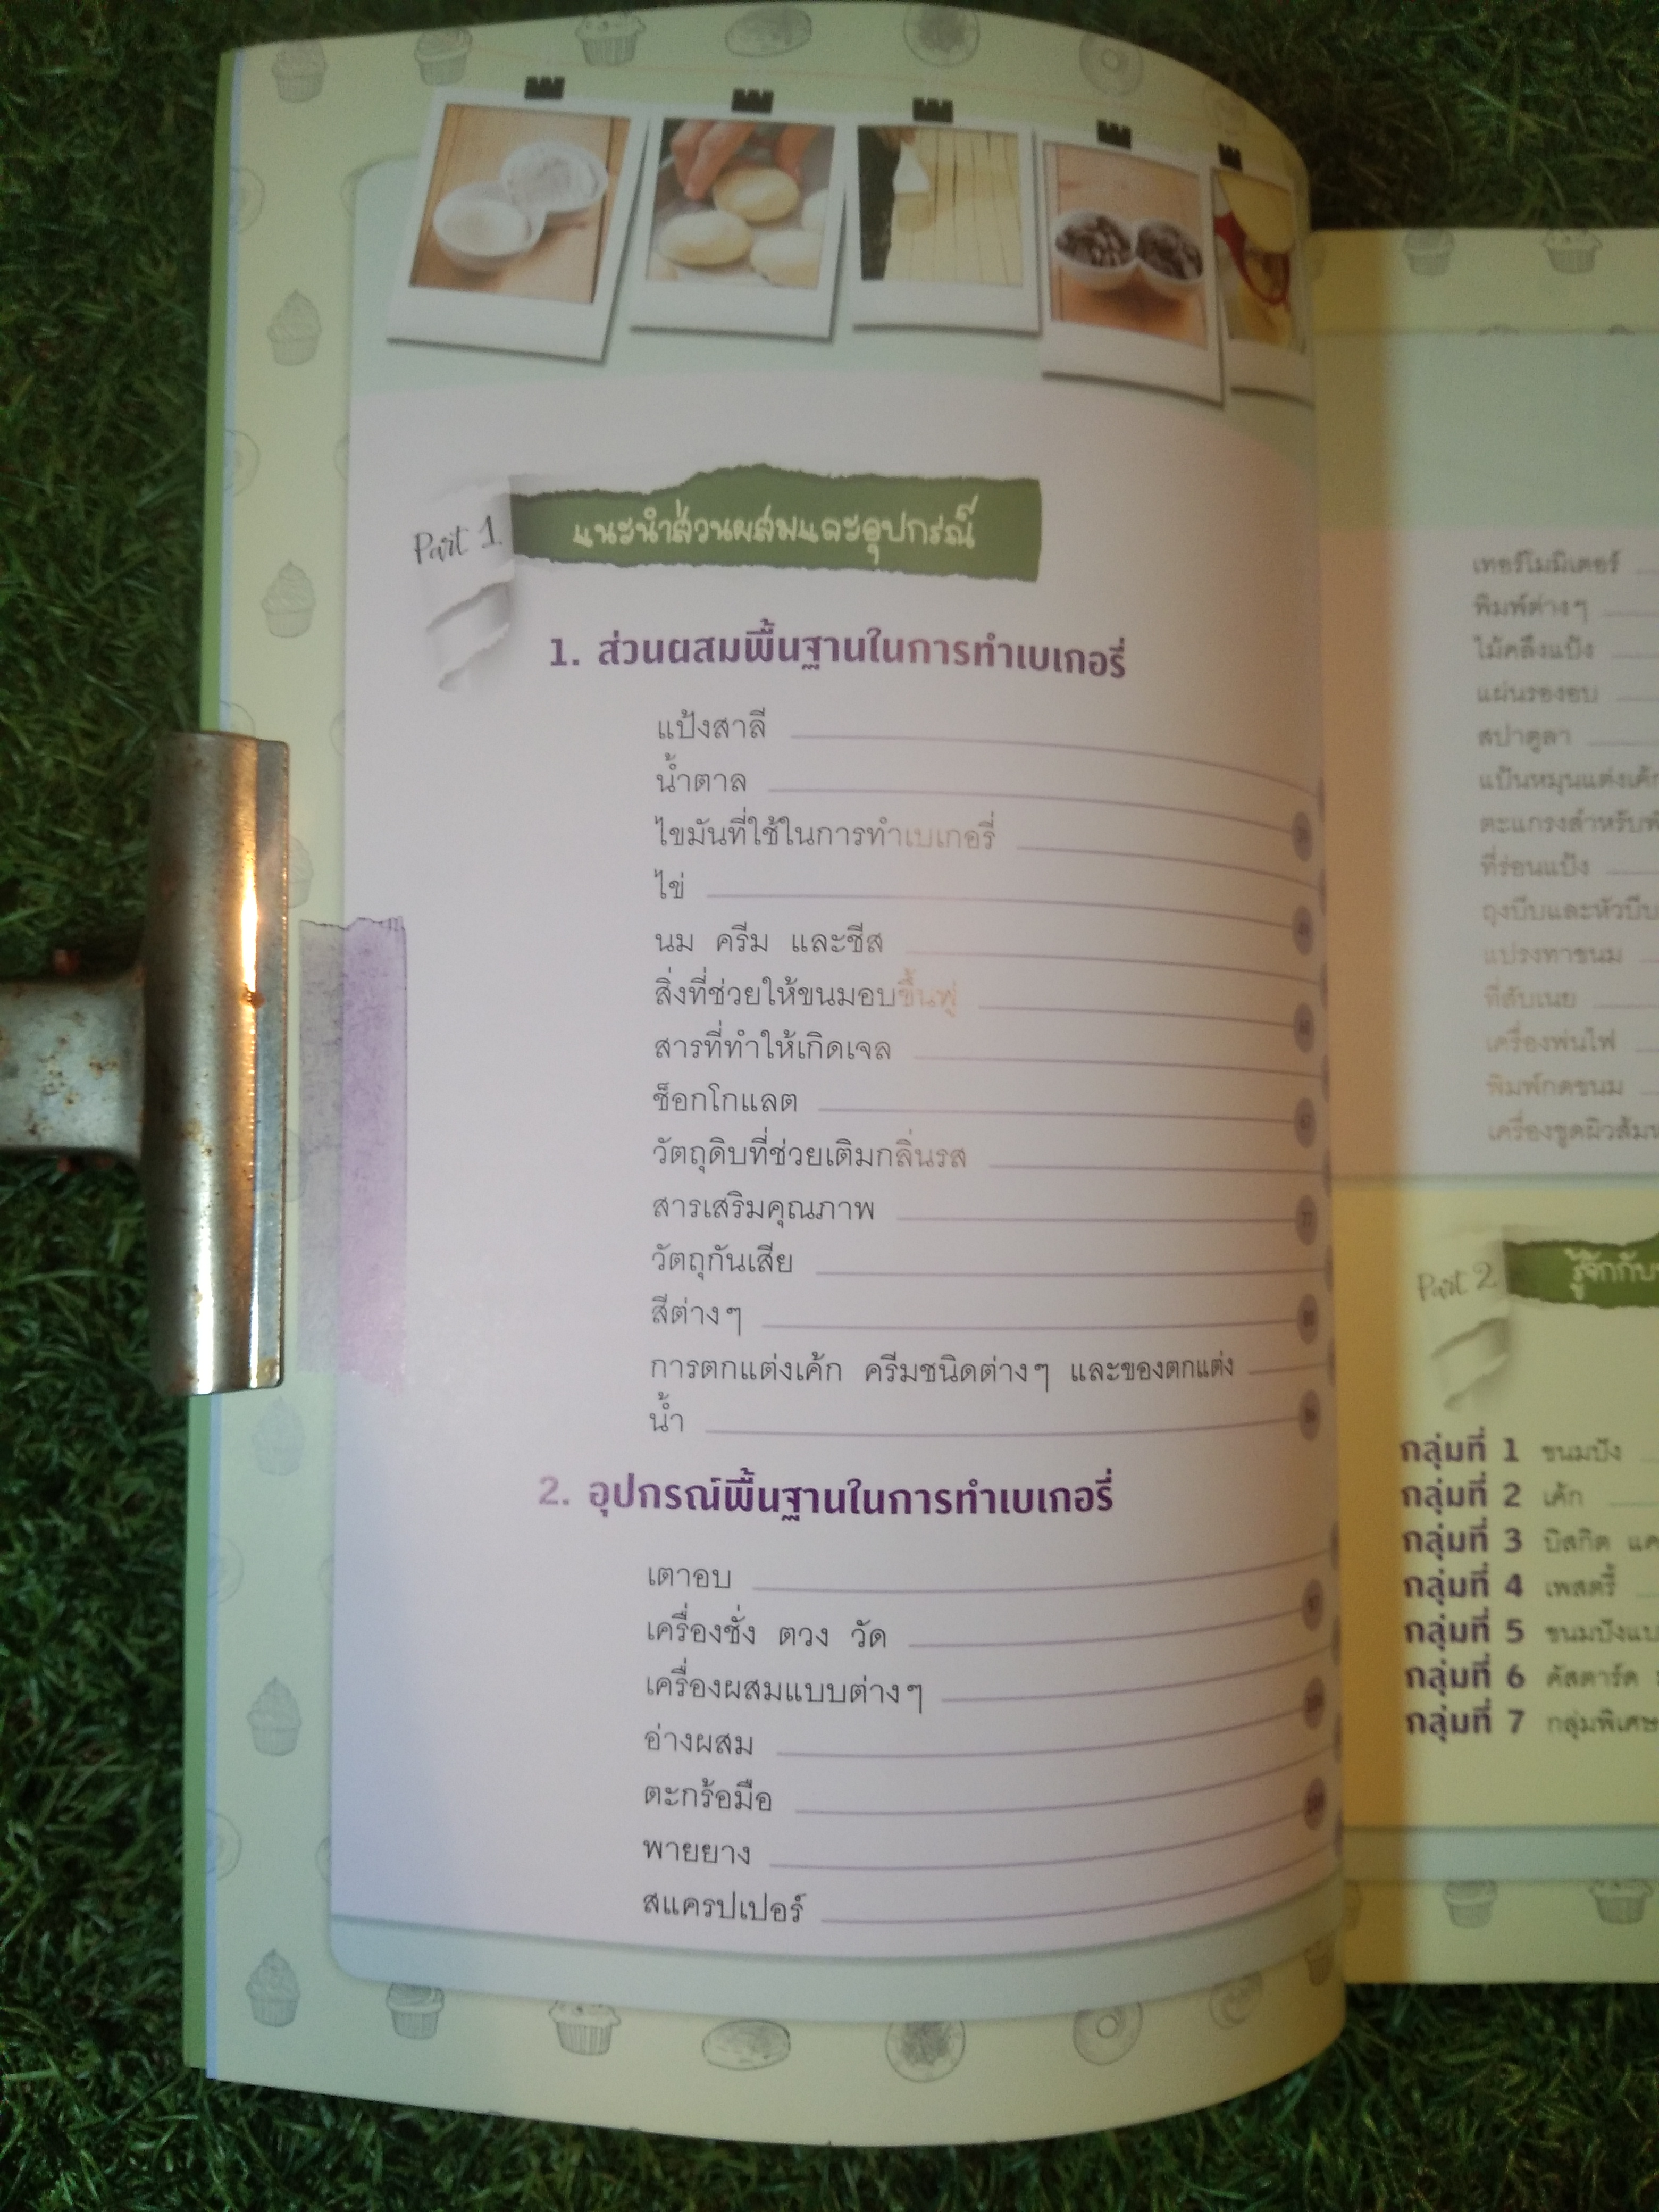 Part 1
แนะนำส่วนผสมและอุปกรณ์
1. ส่วนผสมพื้นฐานในการทำเบเกอรี่
แป้งสาลี
น้ำตาล
ไขมันที่ใช้ในการทำเบเกอรี่
ไข่
นม ครีม และชีส
สิ่งที่ช่วยให้ขนมอบขึ้นฟู
สารที่ทำให้เกิดเจล
ช็อกโกแลต
วัตถุดิบที่ช่วยเติมกลิ่นรส
สารเสริมคุณภาพ
วัตถุกันเสีย
สีต่างๆ
การตกแต่งเค้ก ครีมชนิดต่างๆ และของตกแต่ง
น้ำ
2. อุปกรณ์พื้นฐานในการทำเบเกอรี่
เตาอบ
เครื่องชั่ง ตวง วัด
เครื่องผสมแบบต่างๆ
อ่างผสม
ตะกร้อมือ
พายยาง
สแครปเปอร์
เทอร์โมมิเตอร์
พิมพ์ต่างๆ
ไม้คลึงแป้ง
แผ่นรองอบ
สปาตูลา
แป้นหมุนแต่งเค้ก
ตะแกรงสำหรับ
ที่ร่อนแป้ง
ถุงบีบและหัวบีบ
แปรงทาขนม
ที่สับเนย
เครื่องพ่นไฟ
พิมพ์กดขนม
เครื่องขูดผิวส้ม
Part 2
รู้จักกับ
กลุ่มที่ 1 ขนมปัง
กลุ่มที่ 2 เค้ก
กลุ่มที่ 3 บิสกิต
กลุ่มที่ 4 เพสตรี้
กลุ่มที่ 5 ขนมปังแบ
กลุ่มที่ 6 คัสตาร์ด
กลุ่มที่ 7 กลุ่มพิเศษ